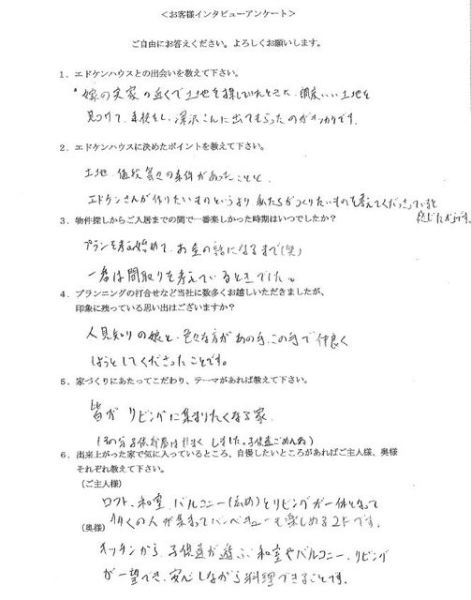 <お客様インタビューアンケート>
ご自由にお答えください。よろしくお願いします。
1. エドケンハウスとの出会いを教えて下さい。
嫁の実家の近くで土地を探していたときに、偶然いい土地を
見つけて、を
2. エドケンハウスに決めたポイントを教えて下さい。
土地、価格などの条件があったことと、
エドケンさんが作りたいものというより私たちがつくりたいものを考えてくださっていると
感じたからです。
3. 物件探しからご入居までの間で一番楽しかった時期はいつでしたか?
プランを考え始めて、お金の話になるまで(笑)
一番は間取りを考えているときでした。
4. プランニングの打合せなど当社に数多くお越しいただきましたが、
印象に残っている思い出はございますか?
人見知りの娘と、色々な方があの手、この手で仲良く
しようとしてくださったことです。
5. 家づくりにあたってこだわり、テーマがあれば教えて下さい。
皆がリビングに集まりたくなる家
(その分子供部屋は しました。子供達ごめんね)
6. 出来上がった家で気に入っているところ、自慢したいところがあればご主人様、奥様
それぞれ教えて下さい。
(ご主人様)
ロフト、和室、バルコニー(広め)とリビングが一体となって
多くの人が集まってバーベキューも楽しめる2Fです。
(奥様)
キッチンから、子供達が遊ぶ和室やバルコニー、リビング
が一望でき、安心しながら料理できることです。